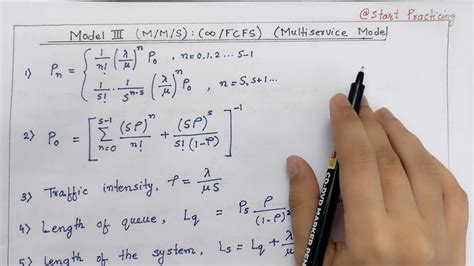 @Start Practicing
Model III (M/M/S) : (∞/FCFS) (Multiservice Model
1) Pn = { 1/n! (λ/μ)^n P0 , n=0,1,2 ... S-1
1/S! · 1/S^(n-s) (λ/μ)^n P0 , n = S, S+1 ...
2) P0 = [ Σ_{n=0}^{s-1} (Sρ)^n / n! + (Sρ)^s / s!(1-ρ) ]^-1
3) Traffic intensity, ρ = λ/μS
4) Length of queue, Lq = Ps ρ/(1-ρ)²
5) Length of the system, Ls = Lq + λ/
CD-DVD MARKER PEN